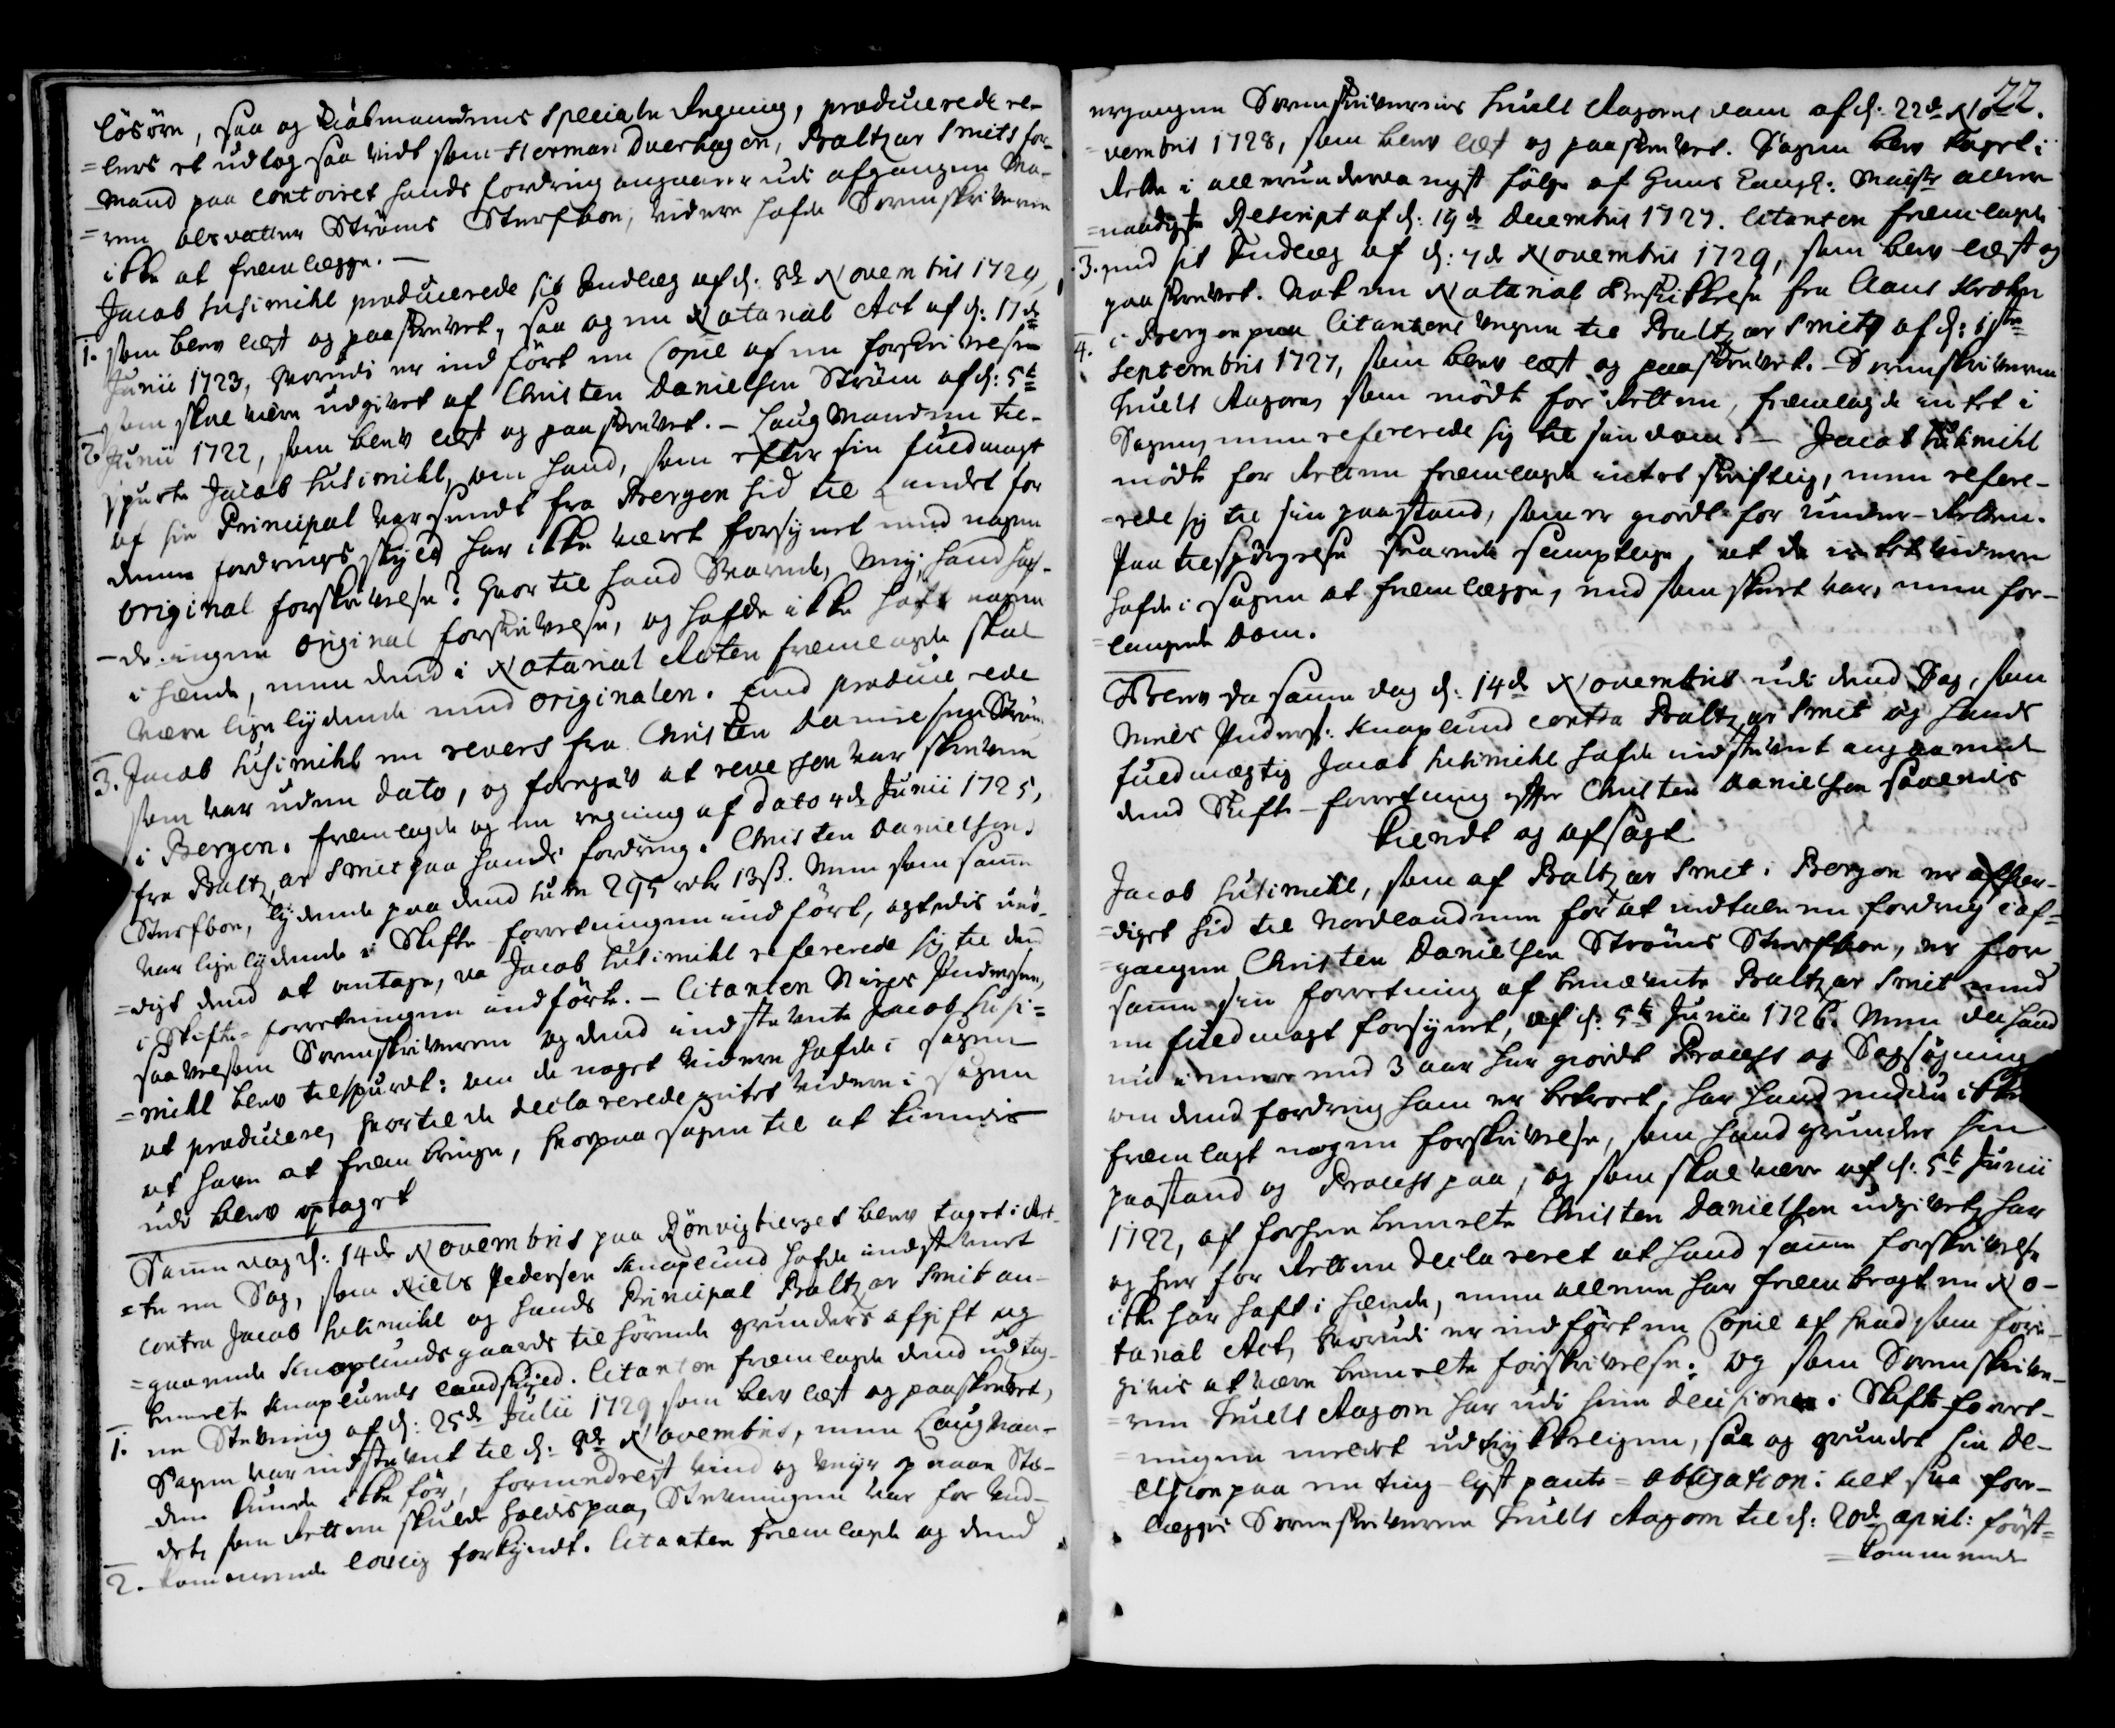 lösöre, saa og Kiöbmandens Speciale Regning, producerede el-
=lers et udtog saa vidt som Herman Duerhagen, Baltzar Smits for-
=mand paa Contoiret hands fordring angaaer udi afgangen Ma-
=ren Olsdatter Ströms Sterfboe, videre hafde Sorenskriveren
ikke at fremlægge. —
Jacob Husimihl producerede sit Indlæg af d: 8de Novembris 1729,
1. som blev læst og paaskrevet, saa og en Notarial Act af d: 17de
Junii 1723, hvorudi er indfört en Copie af en forskrivelse
som skal være udgivet af Christen Danielsen Ström af d: 5te
2. Junii 1722, som blev læst og paaskrevet. — Laugmanden til-
spurte Jacob Husimihl, om hand, som efter sin fuldmagt
af sin Principal var sendt fra Bergen hid til Landet for
denne fordrings skyld har ikke været forsynet med nogen
original forskrivelse? hvor til hand Svarede, Nej, hand haf-
=de ingen original forskrivelse, og hafde ikke haft nogen
i hænde, men dend i Notarial Acten fremlagde skal
være lige lydende med originalen. End producerede
3. Jacob Husimihl en revers fra Christen Danielsen Ström
som var uden dato, og foregav at reversen var skreven
i Bergen. fremlagde og en regning af dato 4de Junii 1725,
fra Baltzar Smit paa hands fordring i Christen Danielsens
Sterfboe, lydende paa dend Summa 295 rdr 13 ß. Men som samme
var lige lydende i Skifte-forretningen indfört, agtedis unö-
=digt dend at antage, da Jacob Husimihl refererede sig til den
i Skifte-forretningen indförte. — Citanten Niels Pedersen,
saavelsom Sorenskriveren og dend indstevnte Jacob Husi=
=mihl blev tilspurdt: om de noget videre hafde i sagen
at producere, hvortil de declarerede intet videre i sagen
at have at frembringe, hvorpaa sagen til at kiendis
udi blev optaget
Samme dag d: 14de Novembris paa Rönvigbierget blev taget i Ret-
=te en Sag, som Niels Pedersen Knaplund hafde indstevnet
contra Jacob Husimihl og hands Principal Baltzar Smit an-
=gaaende Knaplunds gaards tilhörende grunders afgift og
bemelte Knaplunds landskyld. Citanten fremlagde dend udtag-
1. en Stevning af d: 25de Julii 1729 som blev læst og paaskrevet,
Sagen var indstevnt til d: 8de Novembris, men Laugman-
=den kunde ikke för, formedelst vind og vejr naae Ste-
det, som Retten skulde holdis paa, Stevningen var for ved-
2. kommende lovlig forkyndt. Citanten fremlagde og dend
22.
ergangne Sorenskriverens Truels Aagons dom af d: 22de No-
=vembris 1728, som blev læst og paaskrevet. Sagen blev taget i
Rette i allerunderdanigst fölge af Hans Kongl: Mayts aller
=naadigste Rescript af d: 19de Decembris 1727. Citanten fremlagde
3. end sit Indlæg af d: 7de Novembris 1729, som blev læst og
paaskrevet. Nok en Notarial Beskikkelse fra Claus Krohn
4. i Bergen paa Citantens vegne til Baltzar Smit af d: 1ste
Septembris 1727, som blev læst og paaskrevet. — Sorenskriveren
Truels Aagons som mödt for Retten, fremlagde intet i
Sagen, men refererede sig til sin dom. — Jacob Husimihl
mödte for Retten fremlagde intet skriftlig, men refere-
=rede sig til sin paastand, som er giordt for under-Retten.
Paa tilspörgelse svarede samptlige, at de intet videre
hafde i sagen at fremlægge, end som skeet var, men for-
=langede dom.
Blev da samme dag d: 14de Novembris udi dend Sag, som
Niels Pederss: Knaplund contra Baltzar Smit og hands
fuldmægtig Jacob Husimihl hafde indstevnt angaaende
dend Skifte-forretning efter Christen Danielsen saaledis
kiendt og afsagt
Jacob Husimihl, som af Baltzar Smit i Bergen er affær-
=diget hid til Nordlandene for at indtale en fordring i af-
=gangne Christen Danielsen Ströms Sterfboe, er for
samme sin forretning af benævnte Baltzar Smit med
en fuldmagt forsynet, af d: 5te Junii 1726. Men da hand
nu i meere end 3 aar har giordt Process og Sagsögning
om dend fordring ham er betroet, har hand endnu ikke
fremlagt nogen forskrivelse, som hand grunder sin
paastand og Process paa, og som skal være af d: 5te Junii
1722, af forhen bemelte Christen Danielsen udgivet, har
og her for Retten declareret at hand samme forskrivelse
ikke har haft i hænde, men alleene har frembragt en No-
tarial Act, hvorudi er indfört en Copie af hvad som fore-
givis at være bemelte forskrivelse. og som Sorenskrive-
=ren Truels Aagon har udi sine Decisioner i Skifte-forret-
=ningen meldet udtrykkeligen, saa og grundet sin De-
cision paa en ting-lyst pante-obligation: alt saa fore-
lægges Sorenskriveren Truels Aagon til d: 20de april: först-
=kommende